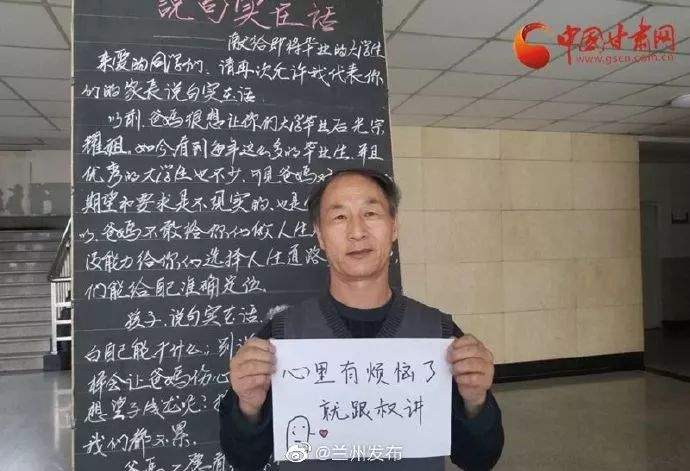 说句实在话
献给即将毕业的大学生
亲爱的同学们，请再次允许我代表你
们的家长说句实在话.
以前,爸妈很想让你们大学毕业后光宗
耀祖。如今看到每年这么多的毕业生,并且
优秀的大学生也不少,可见爸妈
期望和要求是不现实的,也是
以,爸妈不敢给你们做人生
没能力给你们选择人生道路
们能给自己准确定位.
孩子,说句实在话
白自己能干什么;别
样会让爸妈伤心
想望子成龙呢?
我们都不累。
爸妈不要
中国甘肃网
www.gscn.com.cn
心里有烦恼了
就跟叔讲
@兰州发布